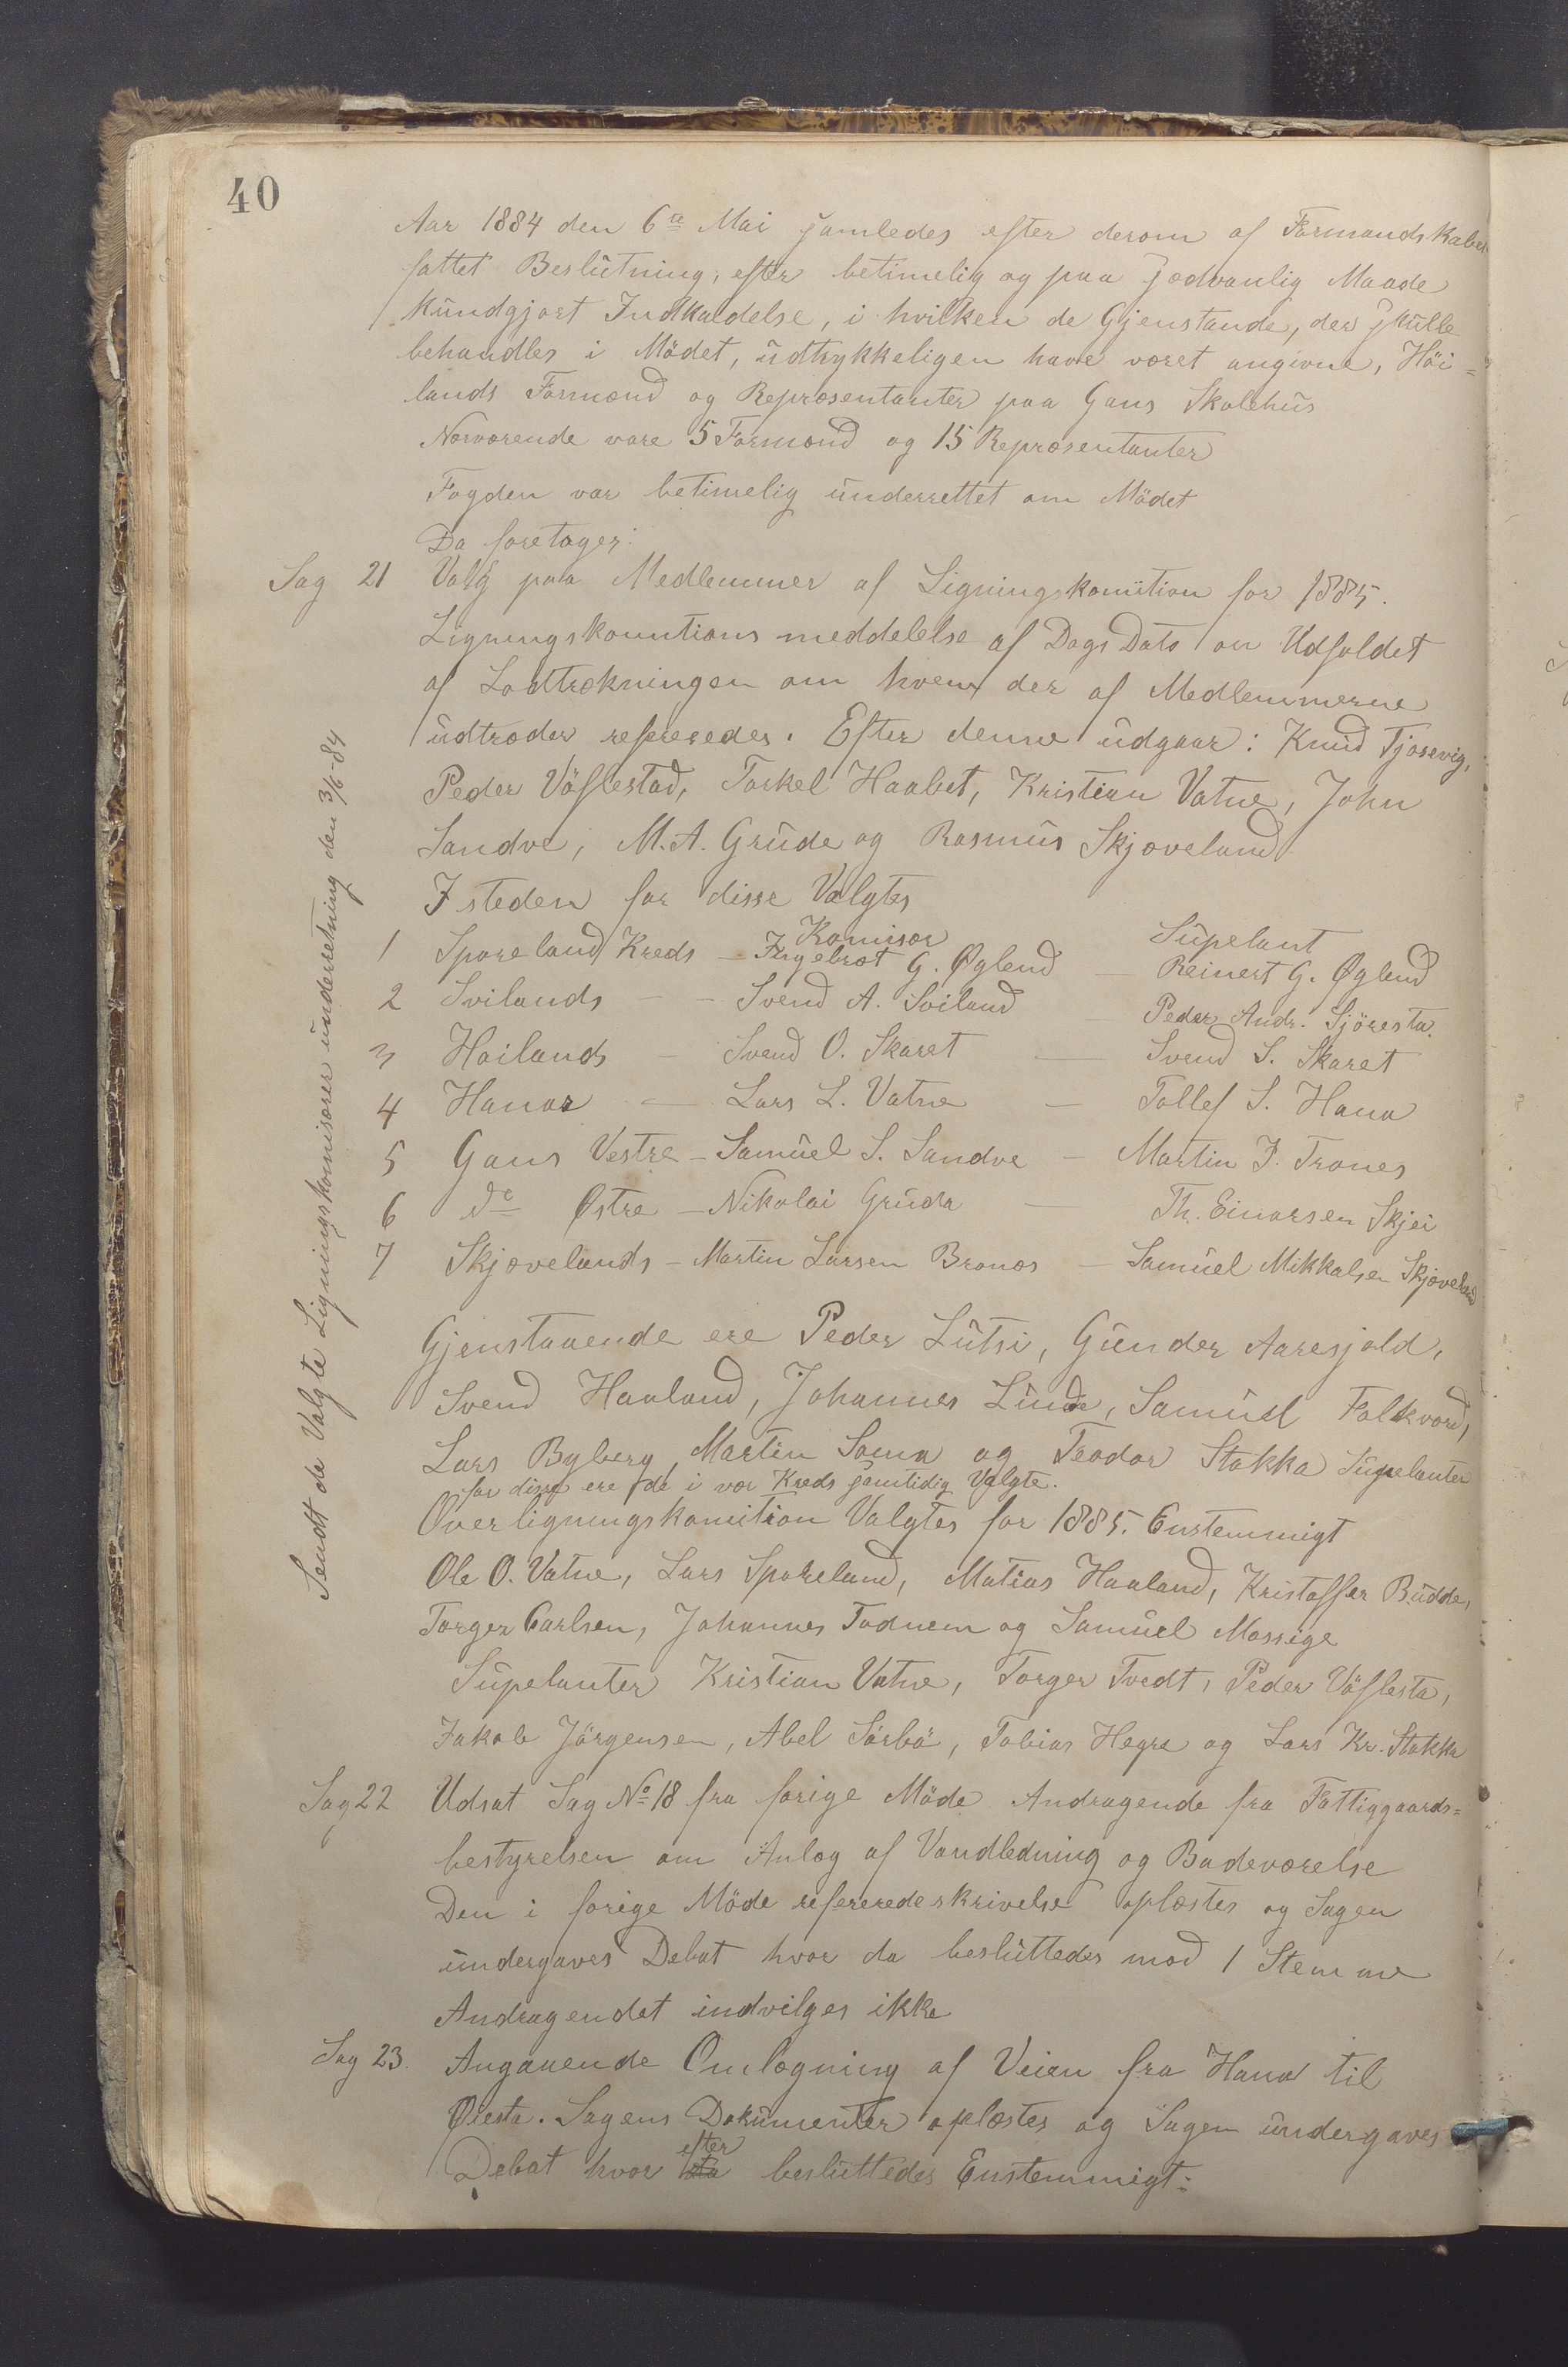 40
Aar 1884 den 6te Mai samledes efter derom af Formandskabet
fattet Beslutning, efter betimelig og paa sedvanlig Maade
kundgjort Indkaldelse, i hvilken de Gjenstande, der skulle
behandles i Mödet, udtrykkeligen have været angivne, Höi=
lands Formænd og Repræsentanter paa Gans Skolehus
Nærværende vare 5 Formænd og 15 Repræsentanter
Fogden var betimelig underrettet om Mödet
Da foretages:
Sag 21 Valg paa Medlemmer af Ligningskomition for 1885.
Ligningskomitions meddelelse af Dags Dato om Udfaldet
af Lodtrækningen om hvem der af Medlemmerne
udtræder refereredes. Efter denne udgaar: Knud Tjosevig,
Peder Vöflestad, Torkel Haabet, Kristian Vatne, John
Sandve, M. A. Grude og Rasmus Skjæveland
I steden for disse Valgtes
Komisær Supelant
1 Sporeland Kreds - Ingebret G. Øglend - Reinert G. Øglend
2 Svilands - - Svend A. Sviland - Peder Andr. Sjöresta.
3 Hoilands - Svend O. Skaret - Svend S. Skaret
4 Hanas - Lars L. Vatne - Tollef S. Hana
5 Gans Vestre - Samuel S. Sandve - Martin J. Trones
6 do Østre - Nikolai Gruda - Th. Einarsen Skjei
7 Skjævelands - Martin Larsen Bronos - Samuel Mikkalsen Skjæveland
Gjenstaaende ere Peder Lutsi, Gunder Aaresjold,
Svend Haaland, Johannes Lunde, Samuel Folkvord,
Lars Byberg, Martin Soma og Teodor Stokka Supelanter
for disse ere de i vor Kreds samtidig Valgte.
Overligningskomition Valgtes for 1885. Enstemmigt
Ole O. Vatne, Lars Sporeland, Matias Haaland, Kristoffer Budde,
Torger Carlsen, Johannes Todnem og Samuel Mossige
Supelanter Kristian Vatne, Torger Tvedt, Peder Vöflesta,
Jakob Jörgensen, Abel Sörbö, Tobias Hegre og Lars Kr. Stokka
Sag 22 Udsat Sag No 18 fra forige Möde Andragende fra Fattiggaards=
bestyrelsen om Anlæg af Vandledning og Badeværelse
Den i forige Möde refererede skrivelse oplæstes og Sagen
undergaves Debat hvor da besluttedes mod 1 Stemme
Andragendet indvilges ikke
Sag 23. Angaaende Omlægning af Veien fra Hana til
Øiesta. Sagens Dokumenter oplæstes og Sagen undergaves
Debat hvor efter besluttedes Enstemmigt:
Sendt de Valgte Ligningskomisærer underretning den 3/6-84